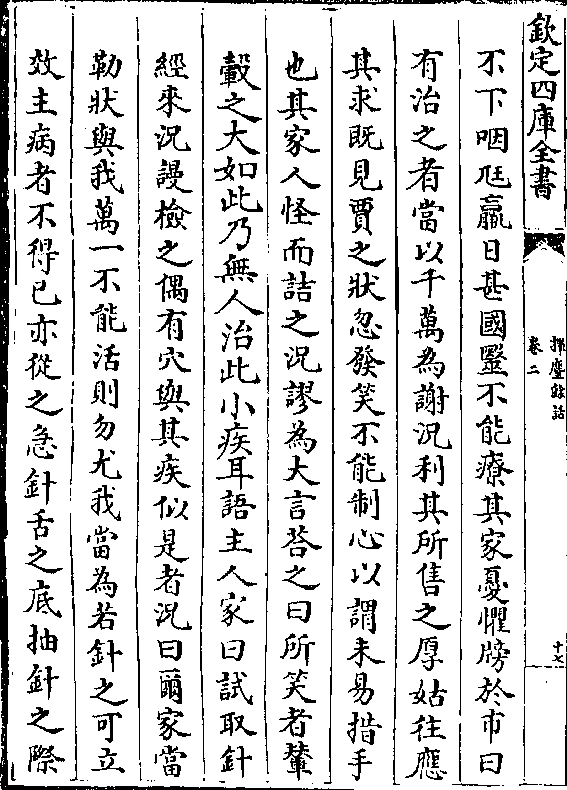 欽定四庫全書
揮麈餘話
卷二
十七
不下咽尫羸日甚國毉不能療其家憂懼牓於市曰
有治之者當以千萬為謝況利其所售之厚姑往應
其求既見賈之狀忽發笑不能制心以謂未易措手
也其家人怪而詰之況謬為大言荅之曰所笑者輦
轂之大如此乃無人治此小疾耳語主人家曰試取針
經來況謾檢之偶有穴與其疾似是者況曰爾家當
勒狀與我萬一不能活則勿尤我當為若針之可立
效主病者不得已亦從之急針舌之底抽針之際